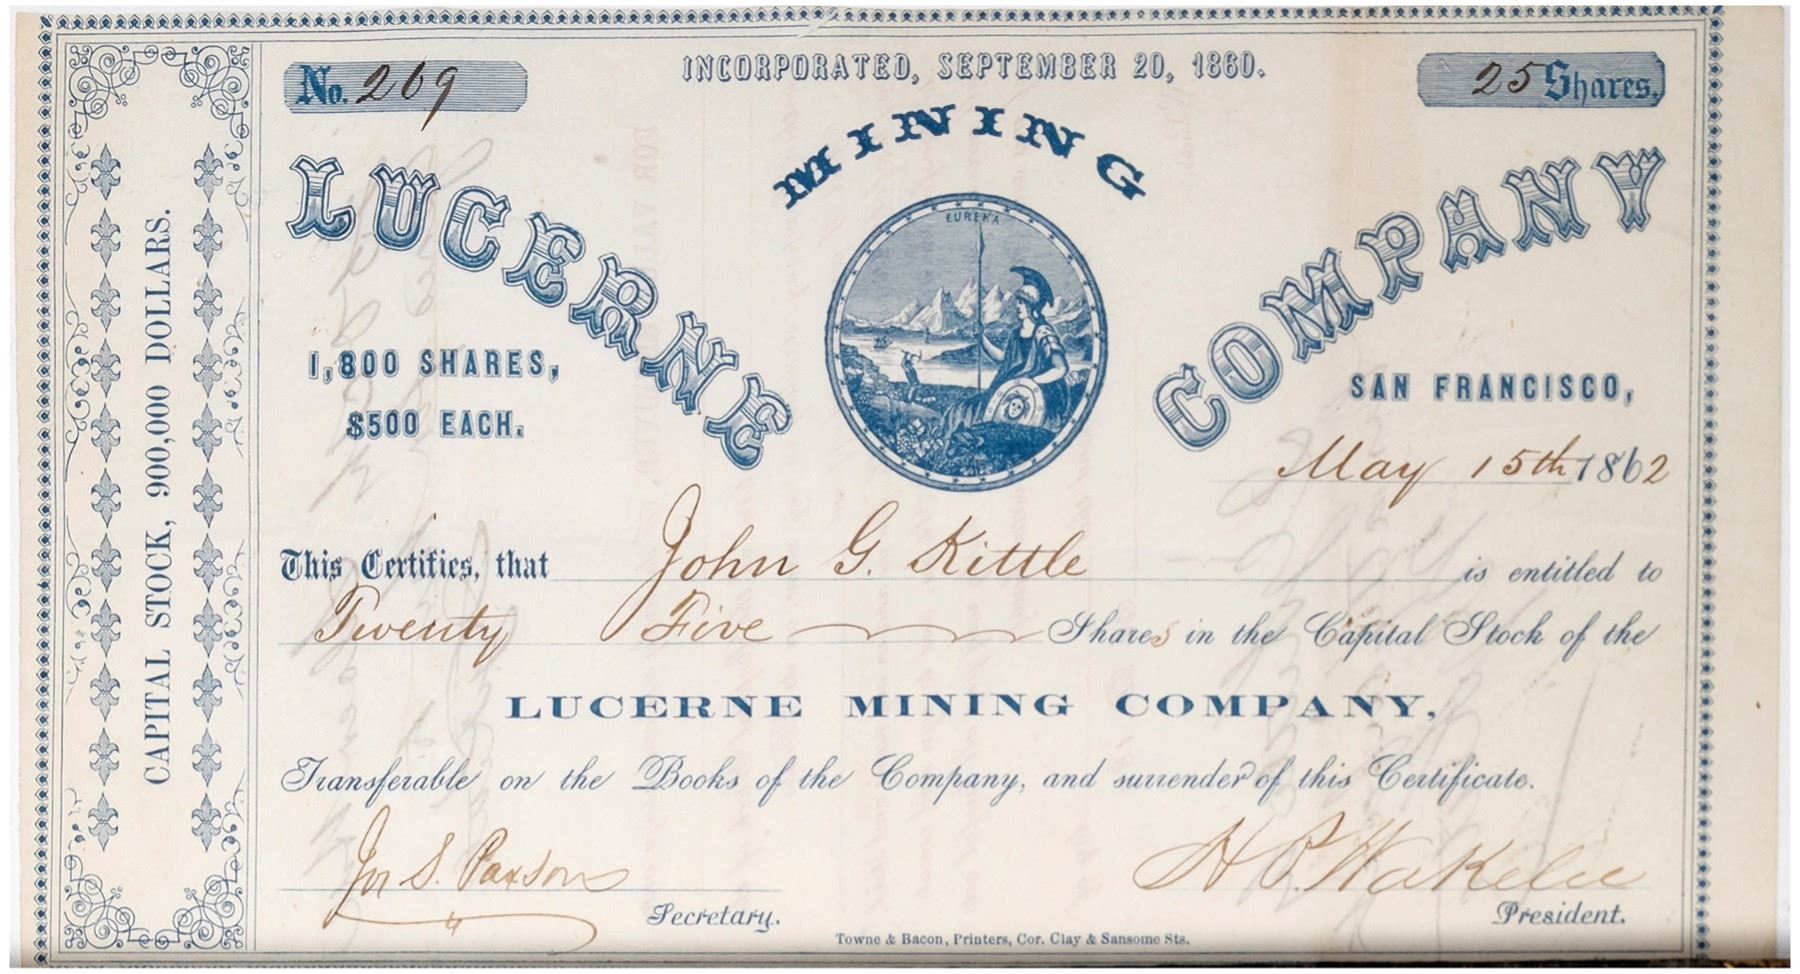 INCORPORATED, SEPTEMBER 20, 1860.
No. 269
25 Shares.
LUCERNE MINING COMPANY
EUREKA
1,800 SHARES,
$500 EACH.
SAN FRANCISCO,
May 15th 1862
This Certifies, that John G. Kittle is entitled to
Twenty Five Shares in the Capital Stock of the
LUCERNE MINING COMPANY,
Transferable on the Books of the Company, and surrender of this Certificate.
Jos S. Paxson
Secretary.
H P. Wakelee
President.
Towne & Bacon, Printers, Cor. Clay & Sansome Sts.
CAPITAL STOCK, 900,000 DOLLARS.